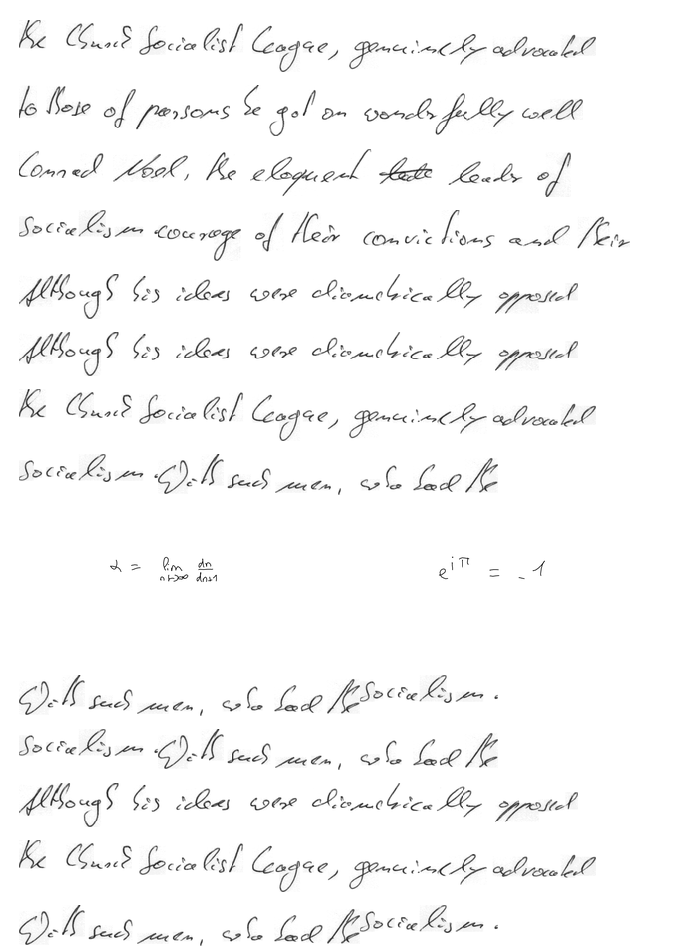 the Church Socialist League, genuinely advocated
to those of persons he got on wonderfully well
Conrad Noel, the eloquent leader of
Socialism courage of their convictions and their
Although his ideas were diametrically opposed
Although his ideas were diametrically opposed
the Church Socialist League, genuinely advocated
Socialism. With such men, who had the
α = lim n→∞ dn/dn+1    e^{iπ} = -1
With such men, who had the Socialism.
Socialism. With such men, who had the
Although his ideas were diametrically opposed
the Church Socialist League, genuinely advocated
With such men, who had the Socialism.